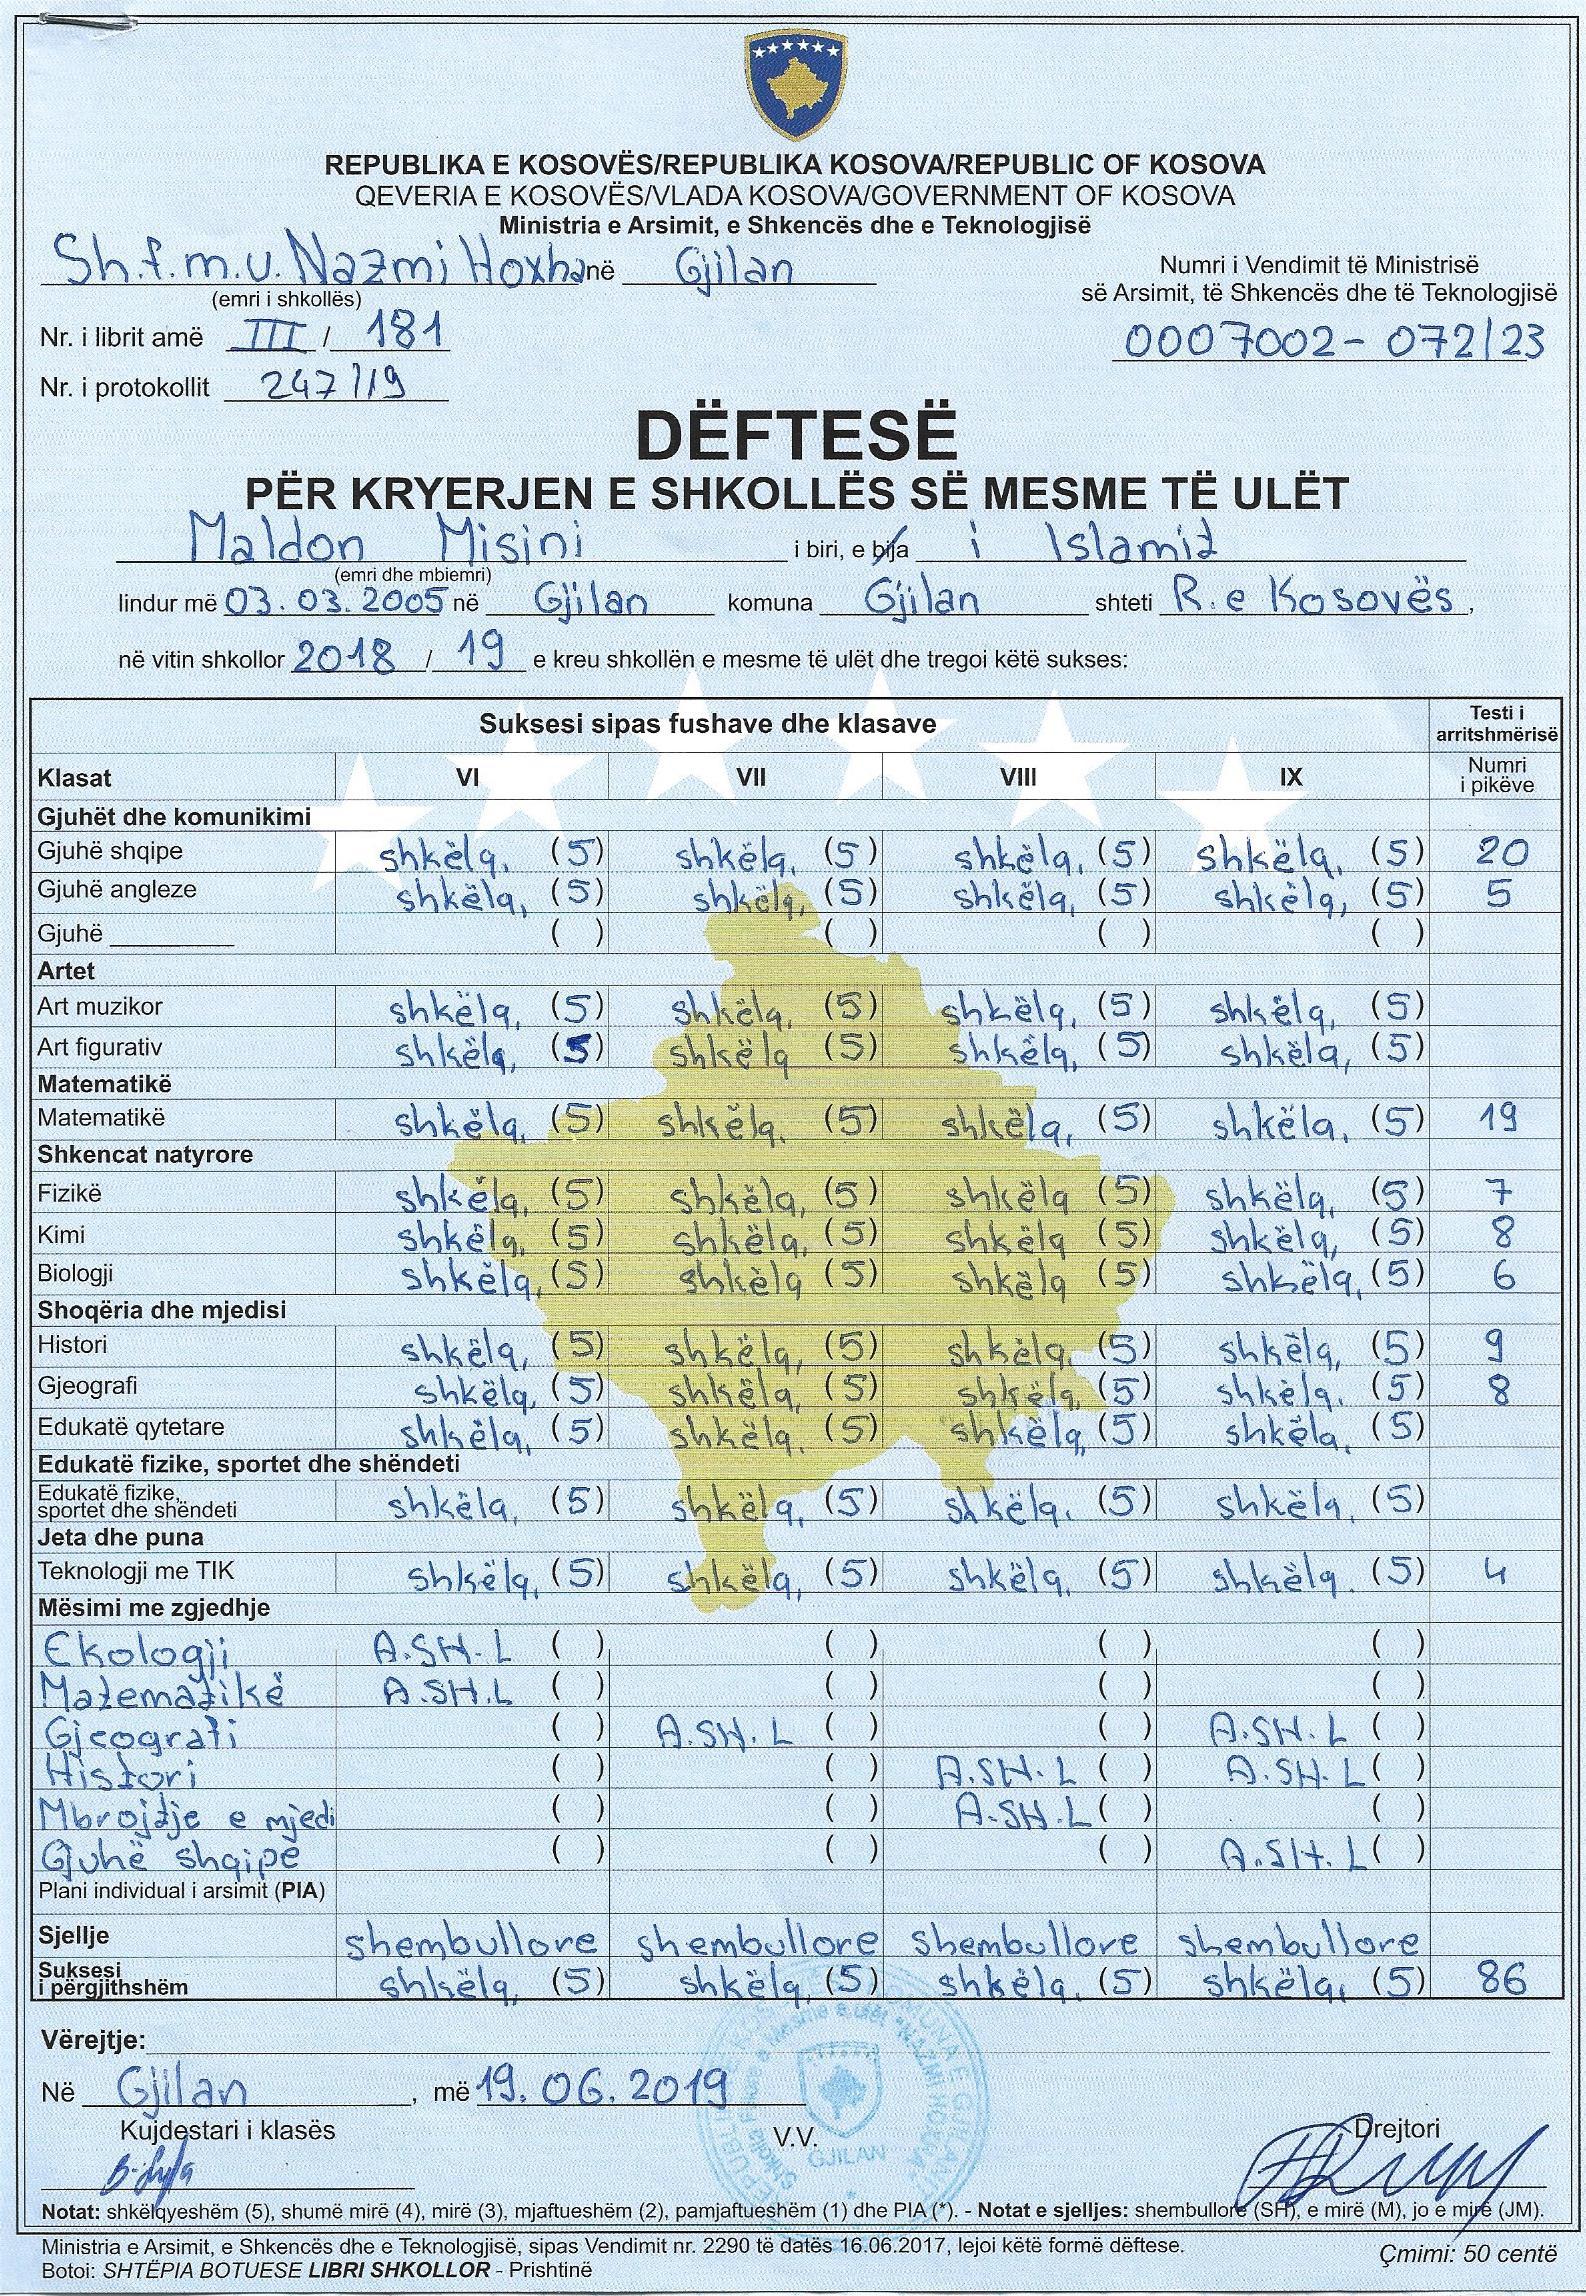 REPUBLIKA E KOSOVËS/REPUBLIKA KOSOVA/REPUBLIC OF KOSOVA
QEVERIA E KOSOVËS/VLADA KOSOVA/GOVERNMENT OF KOSOVA
Ministria e Arsimit, e Shkencës dhe e Teknologjisë
Sh.f.m.u. Nazmi Hoxha në Gjilan
(emri i shkollës)
Numri i Vendimit të Ministrisë
së Arsimit, të Shkencës dhe të Teknologjisë
0007002- 072/23
Nr. i librit amë III / 181
Nr. i protokollit 247/19
DËFTESË
PËR KRYERJEN E SHKOLLËS SË MESME TË ULËT
Maldon Misini i biri, e bija i Islamit
(emri dhe mbiemri)
lindur më 03.03.2005 në Gjilan komuna Gjilan shteti R.e Kosovës,
në vitin shkollor 2018 / 19 e kreu shkollën e mesme të ulët dhe tregoi këtë sukses:
Suksesi sipas fushave dhe klasave Testi i arritshmërisë
Klasat VI VII VIII IX Numri i pikëve
Gjuhët dhe komunikimi
Gjuhë shqipe shkëlq. (5) shkëlq. (5) shkëlq. (5) shkëlq. (5) 20
Gjuhë angleze shkëlq. (5) shkëlq. (5) shkëlq. (5) shkëlq. (5) 5
Gjuhë ________ ( ) ( ) ( ) ( )
Artet
Art muzikor shkëlq. (5) shkëlq. (5) shkëlq. (5) shkëlq. (5)
Art figurativ shkëlq. (5) shkëlq (5) shkëlq. (5) shkëlq. (5)
Matematikë
Matematikë shkëlq. (5) shkëlq. (5) shkëlq. (5) shkëlq. (5) 19
Shkencat natyrore
Fizikë shkëlq. (5) shkëlq. (5) shkëlq (5) shkëlq. (5) 7
Kimi shkëlq. (5) shkëlq. (5) shkëlq (5) shkëlq. (5) 8
Biologji shkëlq. (5) shkëlq (5) shkëlq (5) shkëlq. (5) 6
Shoqëria dhe mjedisi
Histori shkëlq. (5) shkëlq. (5) shkëlq. (5) shkëlq. (5) 9
Gjeografi shkëlq. (5) shkëlq. (5) shkëlq. (5) shkëlq. (5) 8
Edukatë qytetare shkëlq. (5) shkëlq. (5) shkëlq. (5) shkëlq. (5)
Edukatë fizike, sportet dhe shëndeti
Edukatë fizike, sportet dhe shëndeti shkëlq. (5) shkëlq. (5) shkëlq. (5) shkëlq. (5)
Jeta dhe puna
Teknologji me TIK shkëlq. (5) shkëlq. (5) shkëlq. (5) shkëlq. (5) 4
Mësimi me zgjedhje
Ekologji A.SH.L ( ) ( ) ( ) ( )
Matematikë A.SH.L ( ) ( ) ( ) ( )
Gjeografi ( ) A.SH.L ( ) ( ) A.SH.L ( )
Histori ( ) ( ) A.SH.L ( ) A.SH.L ( )
Mbrojtje e mjedi ( ) ( ) A.SH.L ( ) ( )
Gjuhë shqipe ( ) ( ) ( ) A.SH.L ( )
Plani individual i arsimit (PIA)
Sjellje shembullore shembullore shembullore shembullore
Suksesi i përgjithshëm shkëlq. (5) shkëlq. (5) shkëlq. (5) shkëlq. (5) 86
Vërejtje:
Në Gjilan, më 19.06.2019
Kujdestari i klasës V.V. Drejtori
GJILAN
Notat: shkëlqyeshëm (5), shumë mirë (4), mirë (3), mjaftueshëm (2), pamjaftueshëm (1) dhe PIA (*). - Notat e sjelljes: shembullore (SH), e mirë (M), jo e mirë (JM).
Ministria e Arsimit, e Shkencës dhe e Teknologjisë, sipas Vendimit nr. 2290 të datës 16.06.2017, lejoi këtë formë dëftese.
Botoi: SHTËPIA BOTUESE LIBRI SHKOLLOR - Prishtinë
Çmimi: 50 centë